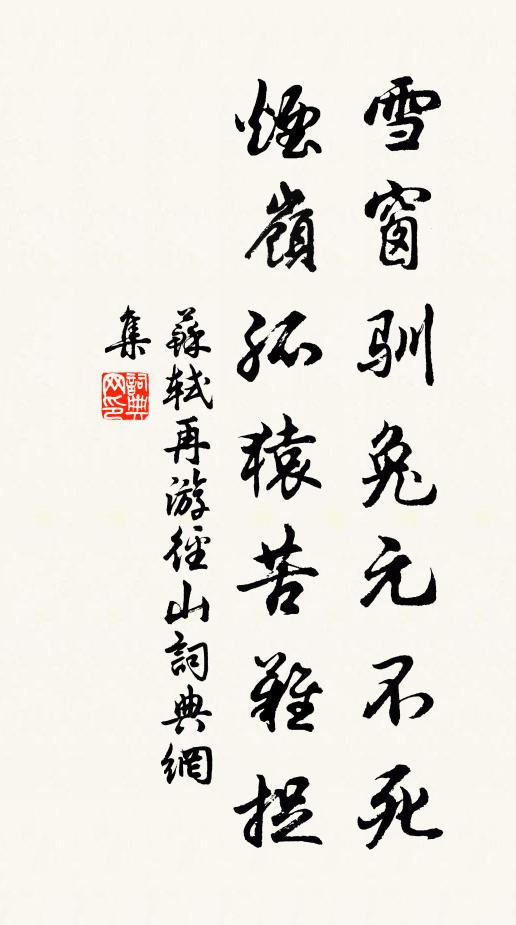 雪窗馴兔元不死
煙嶺孤猿苦難捉
蘇軾再游徑山詞典網
集
詞典网印